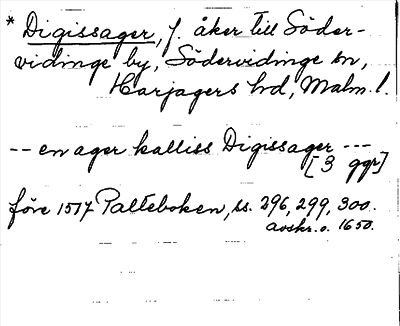 * Digissager, f. åker till Söder-
vidinge by, Södervidinge sn,
Harjagers hd, Malm. l.
-- en ager kalliss Digissager ---
[3 ggr]
före 1517 Palteboken, ss. 296, 299, 300.
avskr. o. 1650.